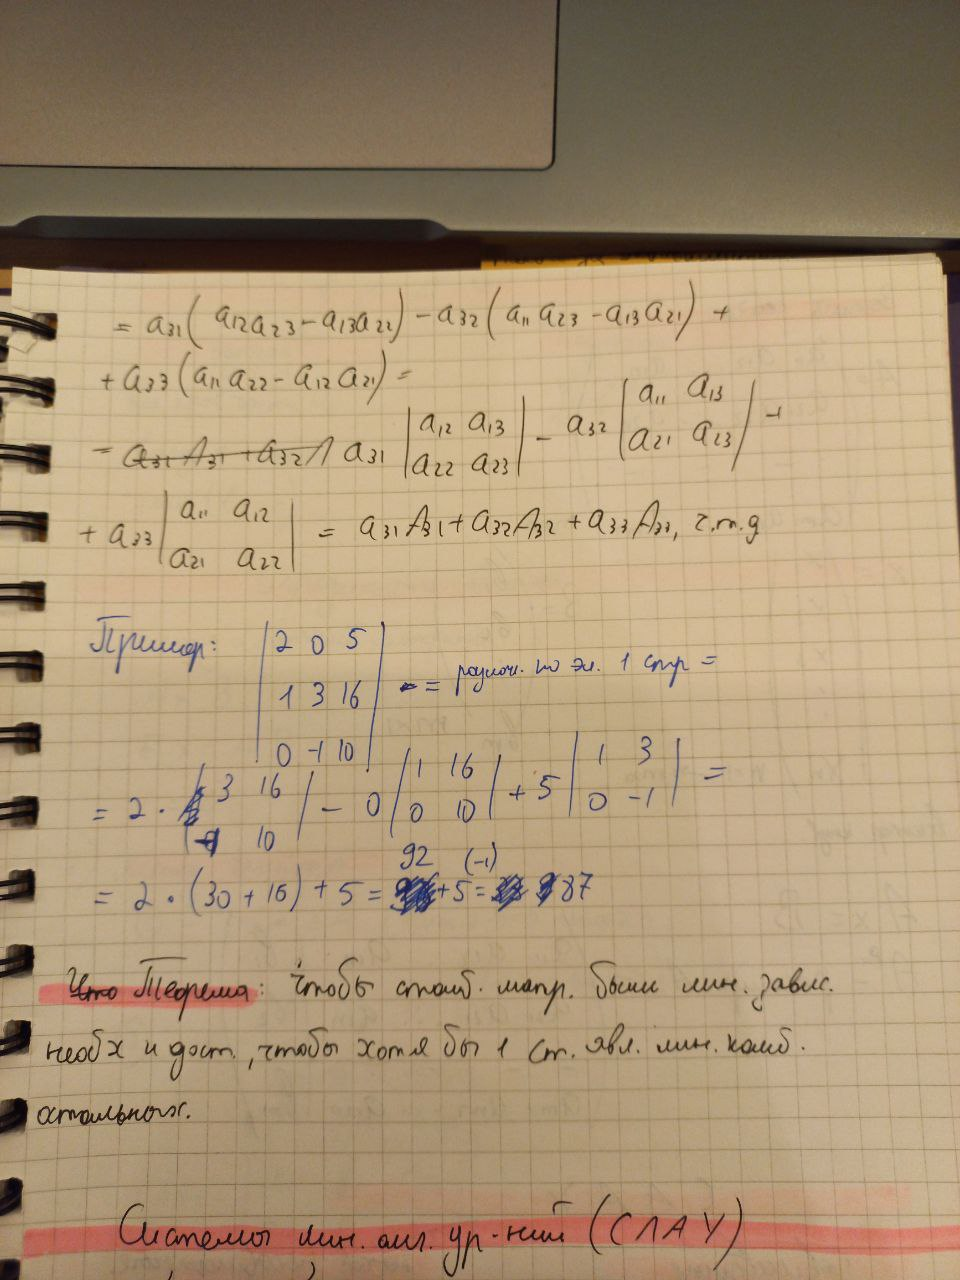 = a₃₁(a₁₂a₂₃ - a₁₃a₂₂) - a₃₂(a₁₁a₂₃ - a₁₃a₂₁) +
+ a₃₃(a₁₁a₂₂ - a₁₂a₂₁) =
= a₃₁ |a₁₂ a₁₃| - a₃₂ |a₁₁ a₁₃| +
|a₂₂ a₂₃| |a₂₁ a₂₃|
+ a₃₃ |a₁₁ a₁₂| = a₃₁A₃₁ + a₃₂A₃₂ + a₃₃A₃₃, ч.т.д
|a₂₁ a₂₂|
Пример: |2 0 5|
|1 3 16| = разлож. по эл. 1 стр =
|0 -1 10|
= 2 · |3 16| - 0 |1 16| + 5 |1 3| =
|-1 10| |0 10| |0 -1|
92 (-1)
= 2 · (30 + 16) + 5 = + 5 = 87
Теорема: чтобы столб. матр. были лин. завис.
необх и дост., чтобы хотя бы 1 ст. явл. лин. комб.
остальных.
Системы лин. алг. ур-ний (СЛАУ)